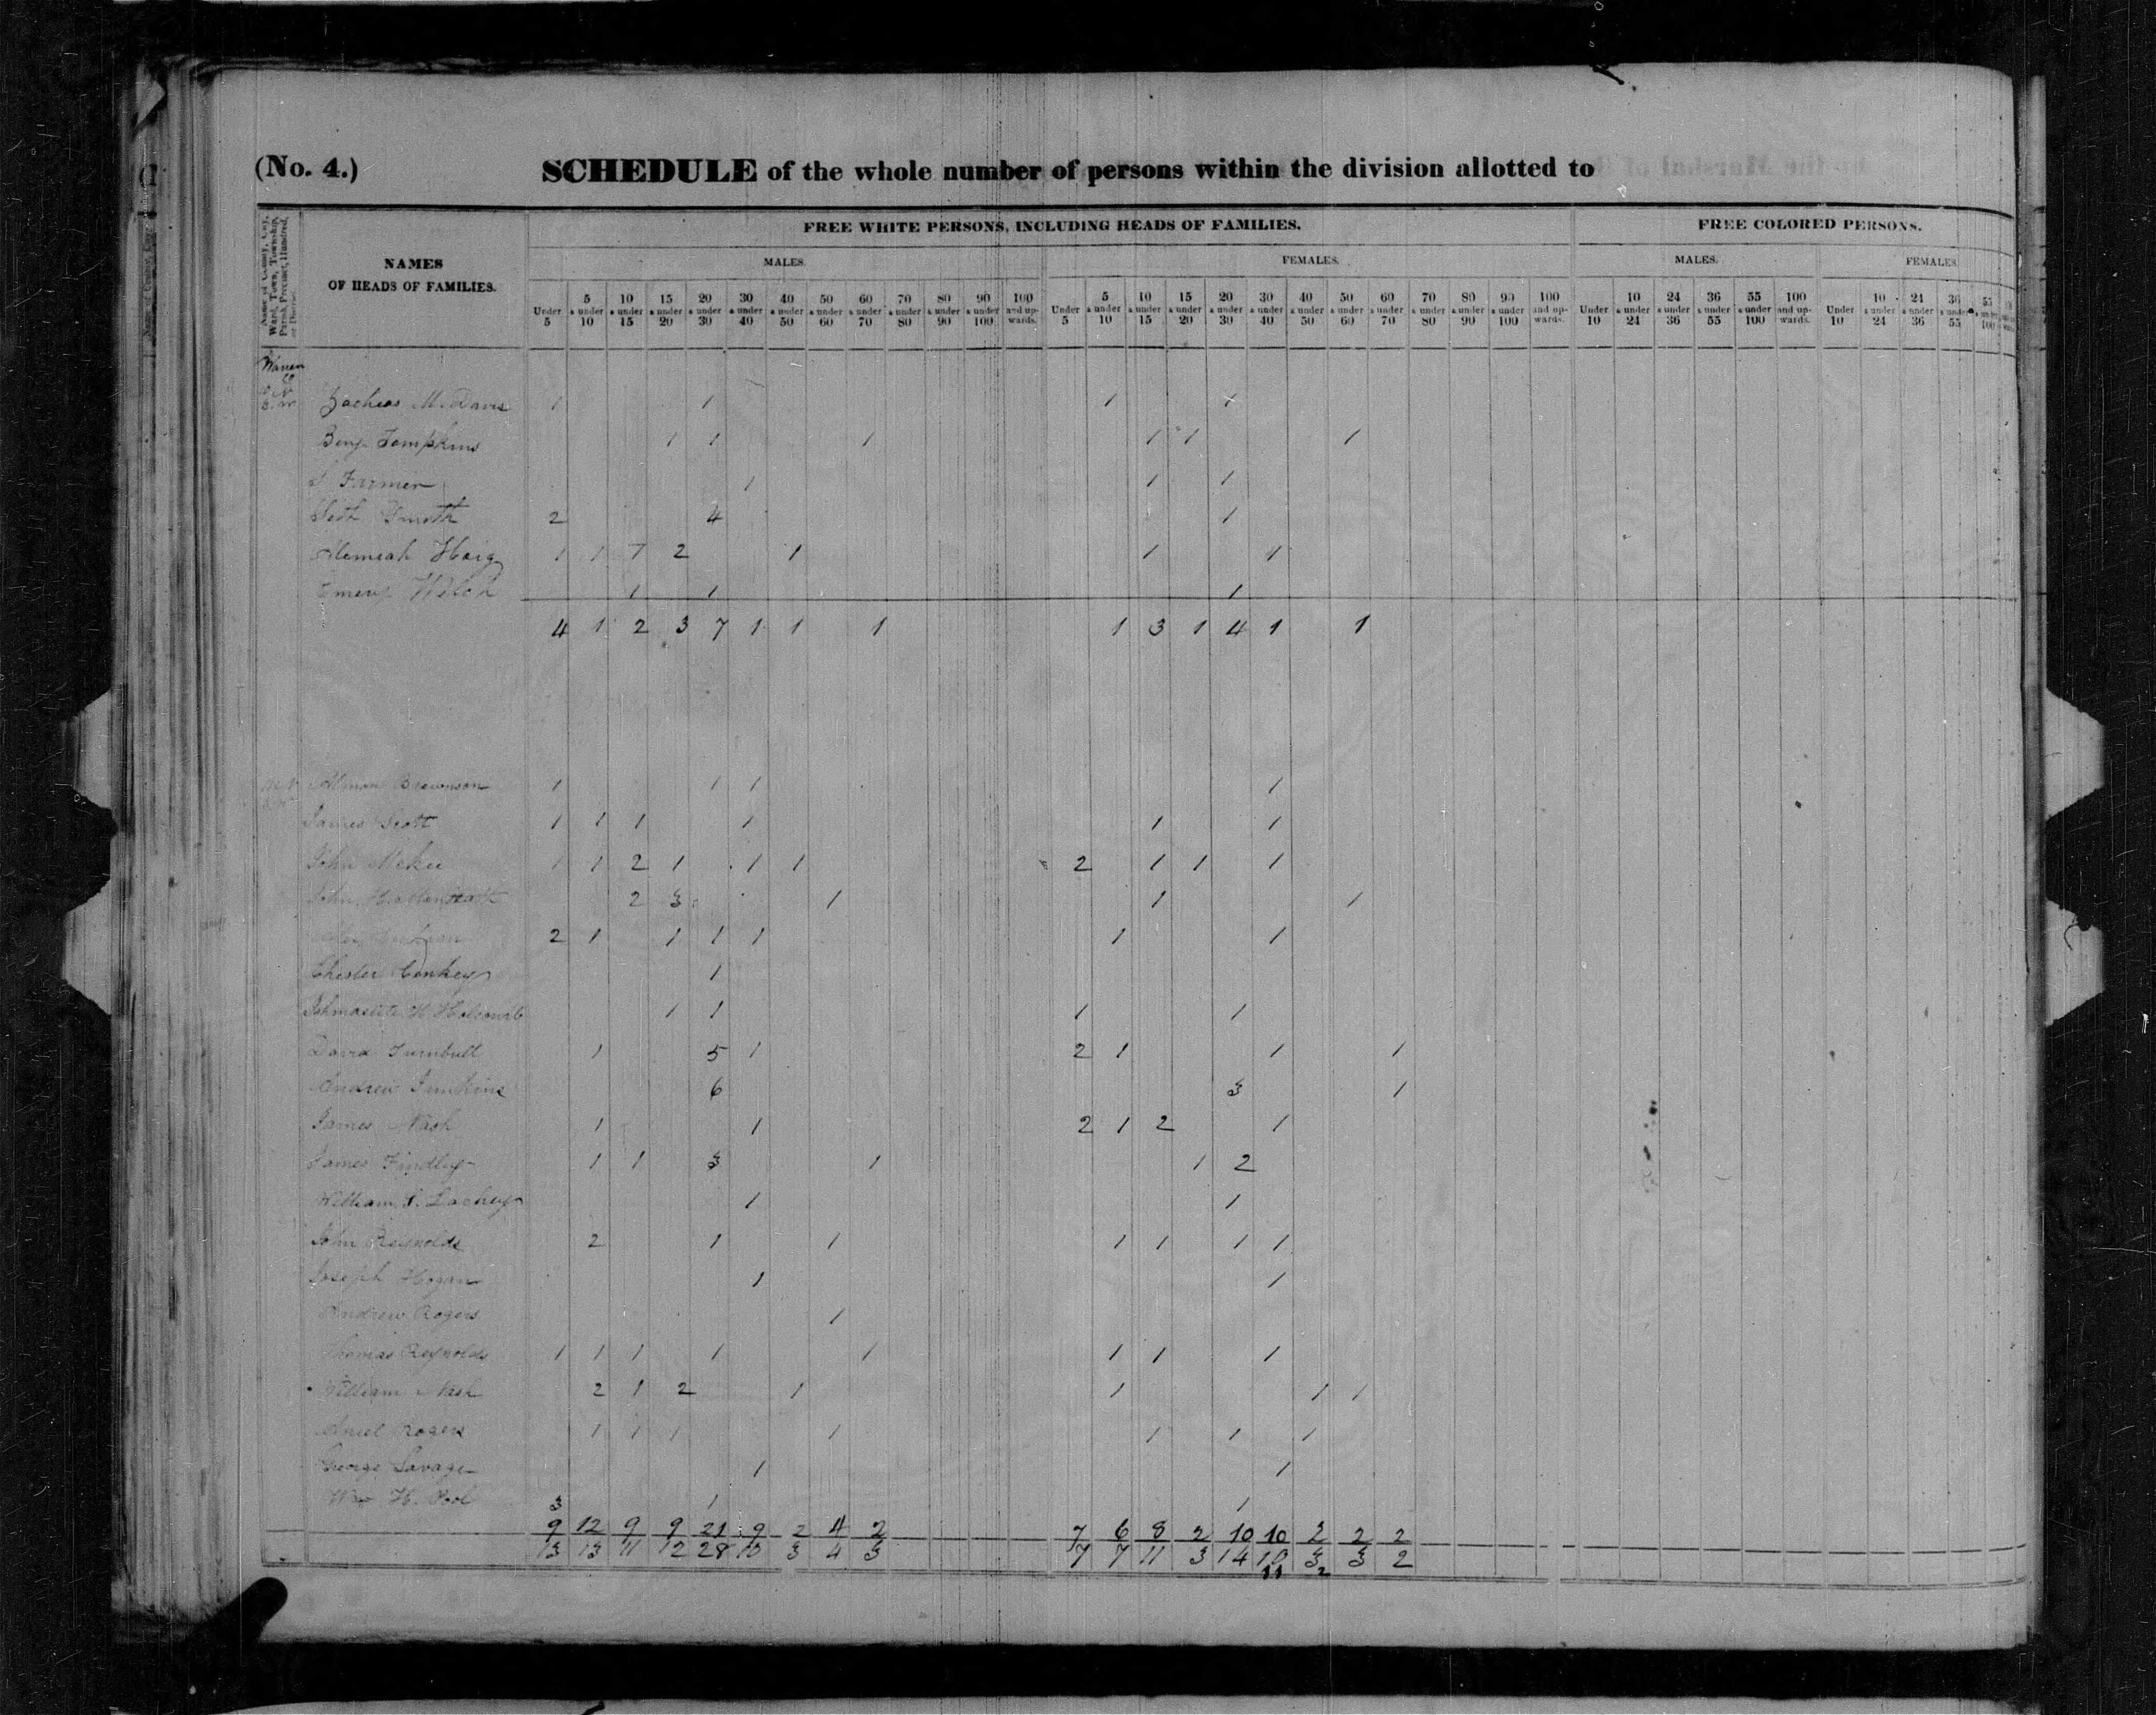 (No. 4.) SCHEDULE of the whole number of persons within the division allotted to
Name of County, City, Ward, Town, Township, Parish, Precinct, Hundred, or District.
NAMES OF HEADS OF FAMILIES.
FREE WHITE PERSONS, INCLUDING HEADS OF FAMILIES. FREE COLORED PERSONS.
MALES. FEMALES. MALES. FEMALES.
Under 5 5 & under 10 10 & under 15 15 & under 20 20 & under 30 30 & under 40 40 & under 50 50 & under 60 60 & under 70 70 & under 80 80 & under 90 90 & under 100 100 and upwards. Under 5 5 & under 10 10 & under 15 15 & under 20 20 & under 30 30 & under 40 40 & under 50 50 & under 60 60 & under 70 70 & under 80 80 & under 90 90 & under 100 100 and upwards. Under 10 10 & under 24 24 & under 36 36 & under 55 55 & under 100 100 and upwards. Under 10 10 & under 24 24 & under 36 36 & under 55 55 & under 100
Warren
Co
Zacheas M. Davis 1 1 1 1
Benj. Tompkins 1 1 1 1 1 1
Farmer 1 1 1
Seth Smith 2 4 1
Haig 1 1 7 2 1 1 1
Emery Welch 1 1 1
4 1 2 3 7 1 1 1 1 3 1 4 1 1
Alman Brownson 1 1 1 1
James Scott 1 1 1 1 1 1
John McKee 1 1 2 1 1 1 2 1 1 1
John 2 3 1 1 1
2 1 1 1 1 1 1
Chester Conkey 1
H. Holcomb 1 1 1 1
David Turnbull 1 5 1 2 1 1 1
Andrew Junkins 6 3 1
James Nash 1 1 2 1 2 1
James Findley 1 1 3 1 1 2
William S. Lackey 1 1
John Reynolds 2 1 1 1 1 1 1
Joseph Hogan 1 1
Andrew Rogers 1
Thomas Reynolds 1 1 1 1 1 1 1 1
William Nash 2 1 2 1 1 1 1
Rogers 1 1 1 1 1 1 1
George Savage 1 1
H. Pool 3 1 1
9 12 9 9 21 9 2 4 2 7 6 8 2 10 10 2 2 2
13 13 11 12 28 10 3 4 3 7 7 11 3 14 10 3 3 2
11 2